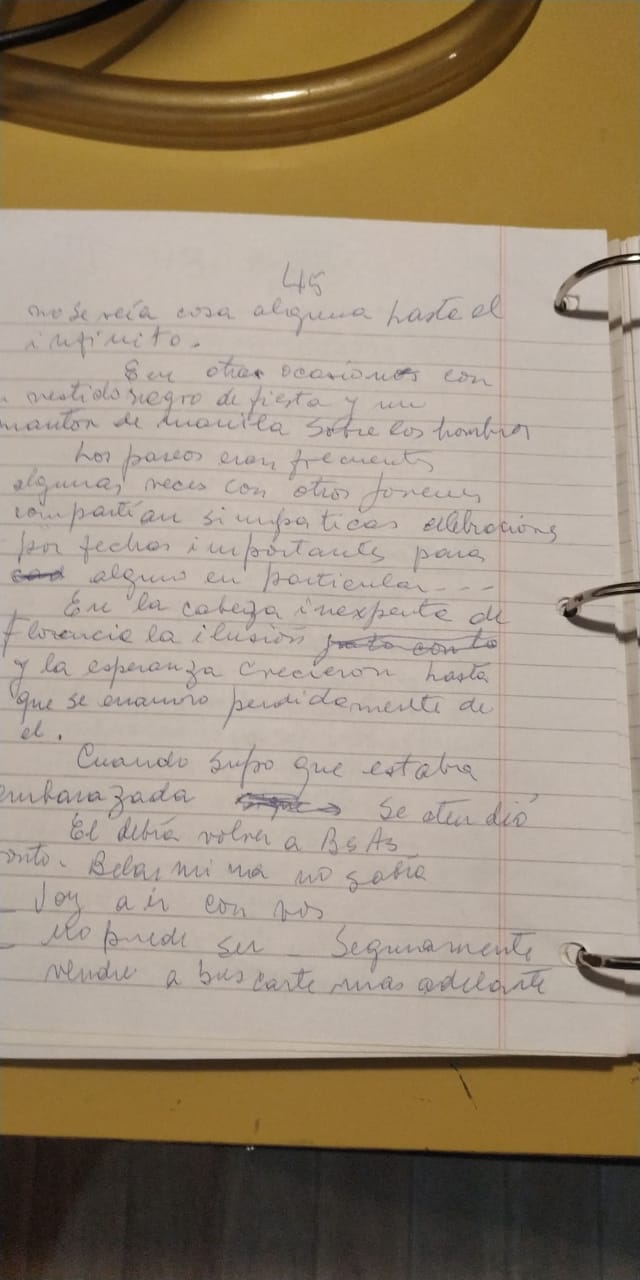 45
no se veía cosa alguna hasta el
infinito.
En otras ocasiones con
vestido negro de fiesta y un
manton de manila sobre los hombros
Los paseos eran frecuentes
algunas veces con otros jovenes
compartían simpaticas celebraciones
por fechas importantes para
alguno en particular - - -
En la cabeza inexperta de
Florencia la ilusión
y la esperanza crecieron hasta
que se enamoro perdidamente de
el.
Cuando supo que estaba
embarazada se atendió
El debía volver a BsAs
onto. Belarmina no sabía
_ Voy a ir con vos
_ No puede ser _ Seguramente
vendre a buscarte mas adelante